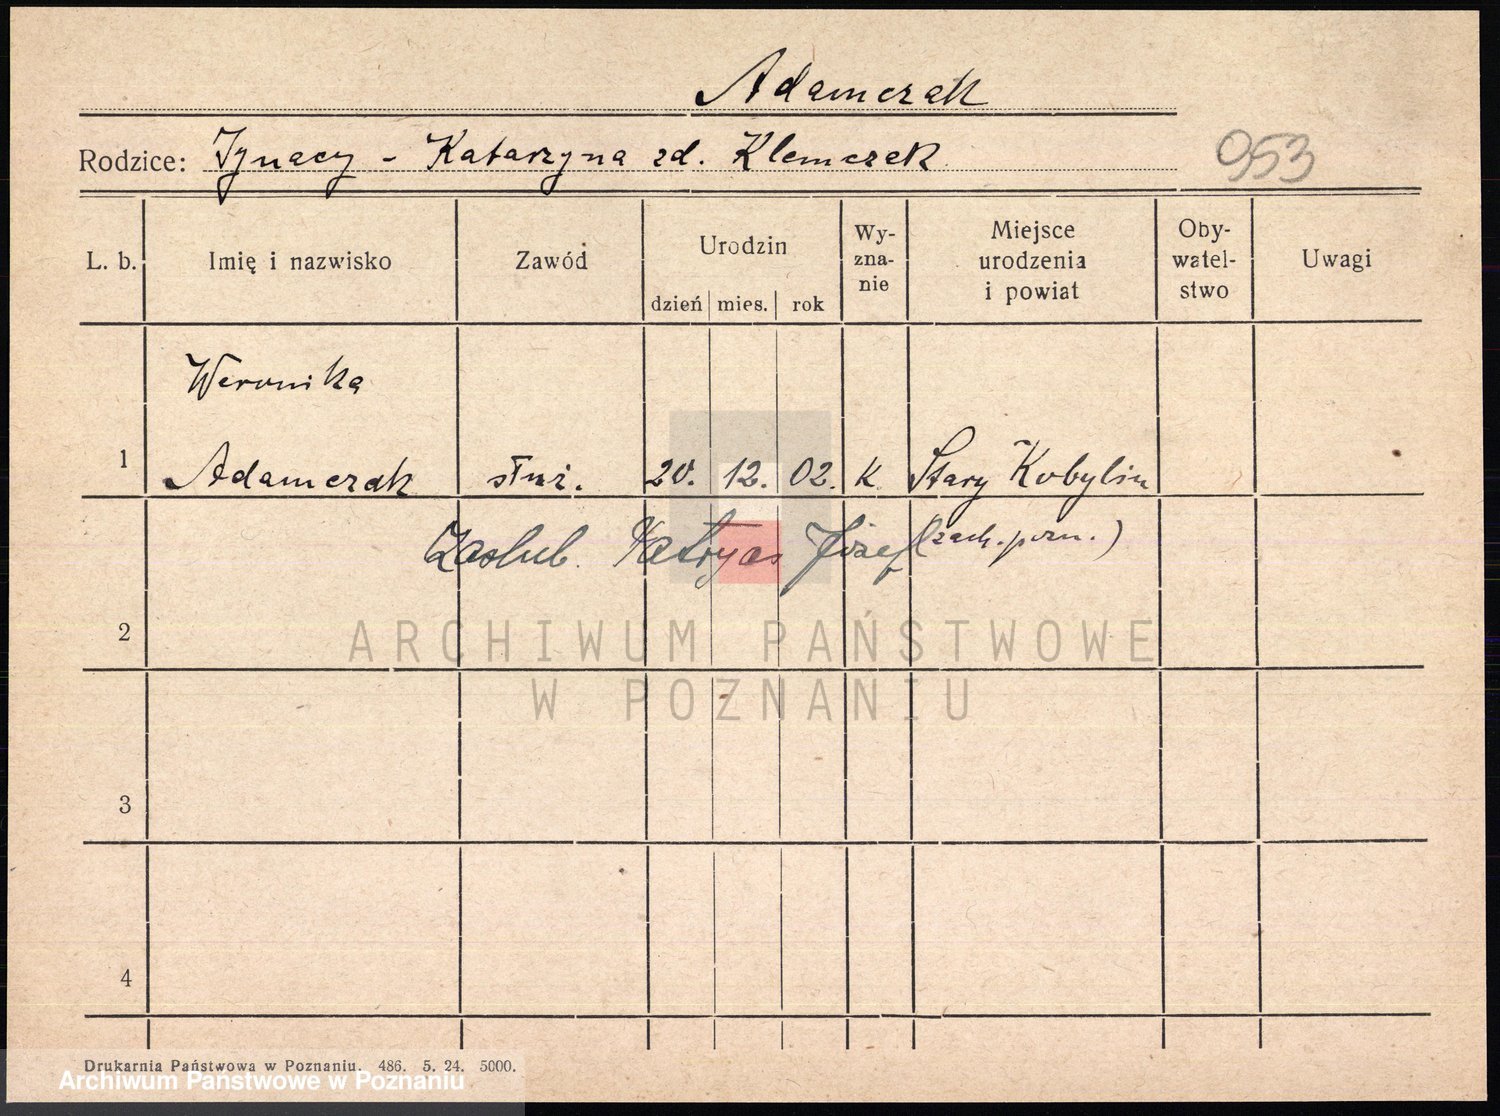 Adamczak
Rodzice: Ignacy - Katarzyna zd. Klemczak
953
L. b.
Imię i nazwisko
Zawód
Urodzin
dzień mies. rok
Wy-
zna-
nie
Miejsce
urodzenia
i powiat
Oby-
watel-
stwo
Uwagi
Weronika
1 Adamczak służ. 20. 12. 02. k. Stary Kobylin
Zaślub. Józef (zach. pozn.)
2
ARCHIWUM PAŃSTWOWE
W POZNANIU
3
4
Drukarnia Państwowa w Poznaniu. 486. 5. 24. 5000.
Archiwum Państwowe w Poznaniu